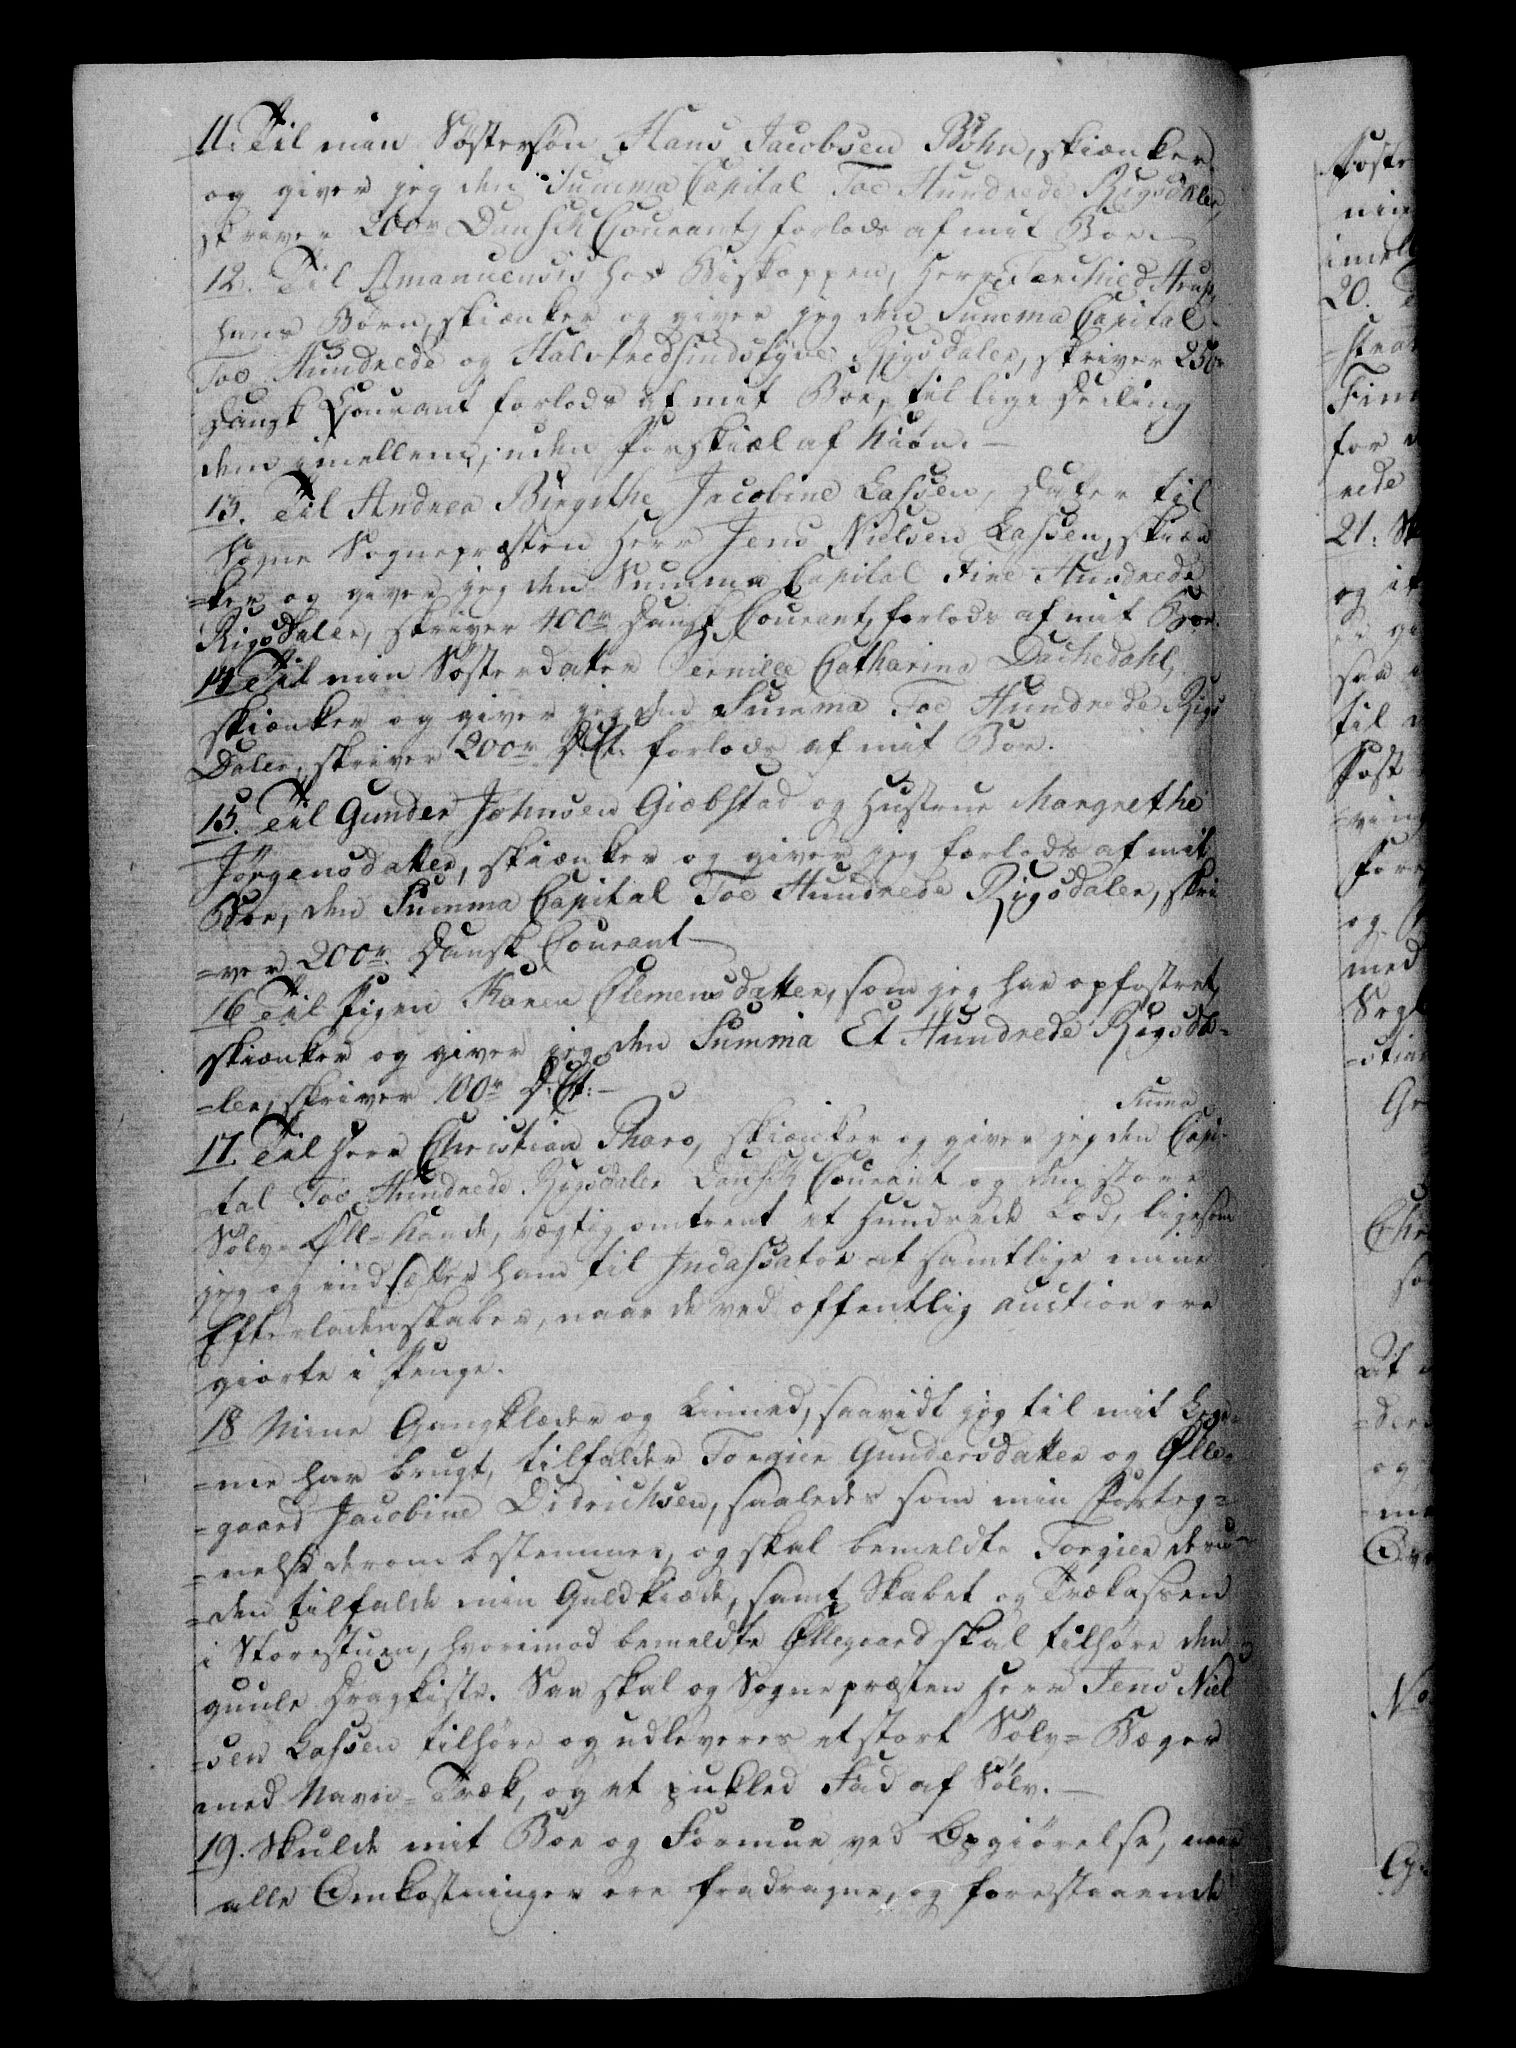 11. Til min Søstersøn Hans Jacobsen Bøhn, skiænker
og giver jeg den Summa Capital Toe Hundrede Rigsdaler,
skriver 200r Dansk Courant, forlods af mit Boe.
12. Til Amanuensis hos Biskoppen, Herr Terchied Arup,
hans Børn, skiænker og giver jeg den Summa Capital
Toe Hundrede og Halvtredsindstyve Rigsdaler, skriver 250r
Dansk Courant forlods af mit Boe, til lige Deeling
dem imellem, uden Forskiæl af Kiøn.
13. Til Andrea Birgithe Jacobine Lassen, Datter til
Sogne Sognepræsten Herr Jens Nielsen Lassen, skiæn
=ker og giver jeg den Summa Capital Fire Hundrede
Rigsdaler, skriver 400r Dansk Courant, forlods af mit Boe.
14. Til min Søsterdatter Pernille Catharina Dachedahl,
skiænker og giver jeg den Summa Toe Hundrede Rigs
Daler, skriver 200r D. Ct. forlods af mit Boe.
15. Til Gunder Johnsen Giæbstad og Hustrue Margrethe
Jørgensdatter, skiænker og giver jeg forlods af mit
Boe, den Summa Capital Toe Hundrede Rigsdaler, skri
=ver 200r. Dansk Courant
16 Til Pigen Karen Clemensdatter, som jeg har opfostret,
skiænker og giver jeg den Summa Et Hundrede Rigsda=
=ler, skriver 100r D. Ct:
Suma
17. Til Herr Christian Pharo, skiænker og giver jeg den Capi-
tal Toe Hundrede Rigsdaler Dansk Courant og den store
Sølv Øll=Kande, vægtig omtrent et Hundrede Lod, ligesom
jeg og indsætter ham til Incassator af samtlige mine
Efterladenskaber, naar de ved offentlig auction ere
giorte i Penge.
18 Mine Gangklæder og Linned, saavidt jeg til mit Lege-
=me har brugt, tilfalder Torgier Gundersdatter og Olle-
=gaard Jacobine Didrichsen, saaledes som min Forteg=
=nelse derom bestemmer, og skal bemeldte Torgier desu=
=den tilfalde min Guldkiæde, samt Skabet og Trækassen
i Storestuen, hvorimod bemeldte Ollegaard skal tilhøre den
guule Dragkiste. Saa skal og Sognepræsten Herr Jens Niel
=sen Lassen tilhøre og udleveres et stort Sølv=Bæger
med Navne=Træk, og et pukled Fad af Sølv.
19. Skulde mit Boe og Formue ved Opgiørelse, naar
alle Omkostninger ere fradragne, og forestaaende